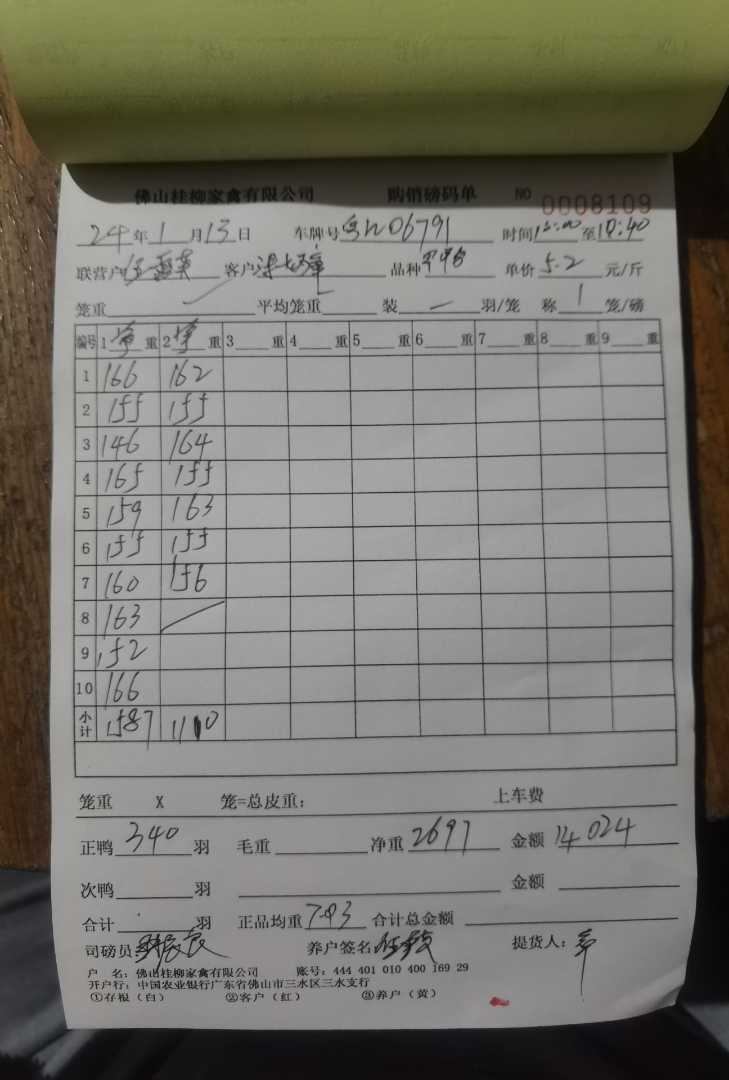 佛山桂柳家禽有限公司 购销磅码单 NO 0008109
24年1月13日 车牌号粤H06791 时间15:00至18:40
联营户 客户 品种 单价5.2元/斤
笼重 平均笼重 装 一 羽/笼 称 1 笼/磅
编号 1 净 重 2 净 重 3 重 4 重 5 重 6 重 7 重 8 重 9 重
1 166 162
2 155 155
3 146 164
4 165 155
5 159 163
6 155 155
7 160 156
8 163
9 152
10 166
小计 1587 1110
笼重 X 笼=总皮重: 上车费
正鸭 340 羽 毛重 净重 2697 金额 14024
次鸭 羽 金额
合计 羽 正品均重 7.93 合计总金额
司磅员 养户签名 提货人:
户 名:佛山桂柳家禽有限公司 账号:444 401 010 400 169 29
开户行:中国农业银行广东省佛山市三水区三水支行
①存根(白) ②客户(红) ③养户(黄)